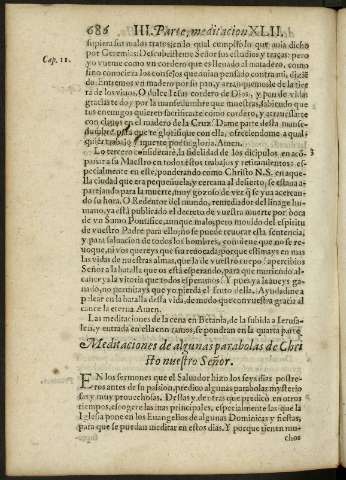 686 III. Parte, meditacion XLII.
supiera sus malos tratos, en lo qual cumplislo que auia dicho
Cap. 11.
por Geremias: Descubristeme Señor sus estudios y traças: pero
yo vueme como vn cordero que es lleuado al matadero, como
sino conociera los consejos que auian pensado contra mi, dizié
do: Entremos vn madero por su pan, y arranquemosle de la tier
ra de los viuos. O dulce Iesus cordero de Dios, y pan de vida:
gracias te doy por la mansedumbre que muestras, sabiendo que
tus enemigos quieren sacrificarte como cordero, y atrauesarte
con clauos en el madero de la Cruz. Dame parte desta manse-
dumbre, para que te glorifique con ella, ofreciendome a qual-
quier trabajo y muerte por tu gloria. Amen.
Lo tercero considerarè, la fidelidad de los dicipulos en acó-
3
pañar a su Maestro en todos estos trabajos y retiramientos: es-
pecialmente en este, ponderando como Christo N.S. en aque-
lla ciudad que era pequeñuela, y cercana al desierto, se estaua a-
parejando para la muerte, muy gozoso de ver q se yua acercan-
do su hora. O Redentor del mundo, remediador del linage hu-
mano, ya està publicado el decreto de vuestra muerte por boca
de vn Sumo Pontifice, aunque malo, pero mouido del espiritu
de vuestro Padre: para ello, no se puede reuocar esta sentencia,
y para saluacion de todos los hombres, conuiene que no se re-
uoque, ni vos quereys que sea reuocada, porque estimays en mas
las vidas de nuestras almas, que la de vuestro cuerpo: apercibios
Señor a la batalla que os està esperando, para que muriendo al-
canceys la vitoria que todos esperamos. Y pues ya la aueys ga-
nado, no permitays que yo pierda el fruto della. Ayudadme a
pelear en la batalla desta vida, de modo que con vuestra gracia al
cance la eterna. Amen.
Las meditaciones de la cena en Betania, de la subida a Ierusa-
len, y entrada en ella con ramos, se pondran en la quarta parte.
Meditaciones de algunas parabolas de Chri
sto nuestro Señor.
EN los sermones que el Saluador hizo los seys dias postre-
ros antes de su passion, predicò algunas parabolas mysterio
sas y muy prouechosas. Dessas y de otras que predicò en otros
tiempos, escogere las mas principales, especialmente las que la
Iglesia pone en los Euangelios de algunas Dominicas y fiestas,
para que se puedan meditar en estos dias. Y porque tienen mu-
chos